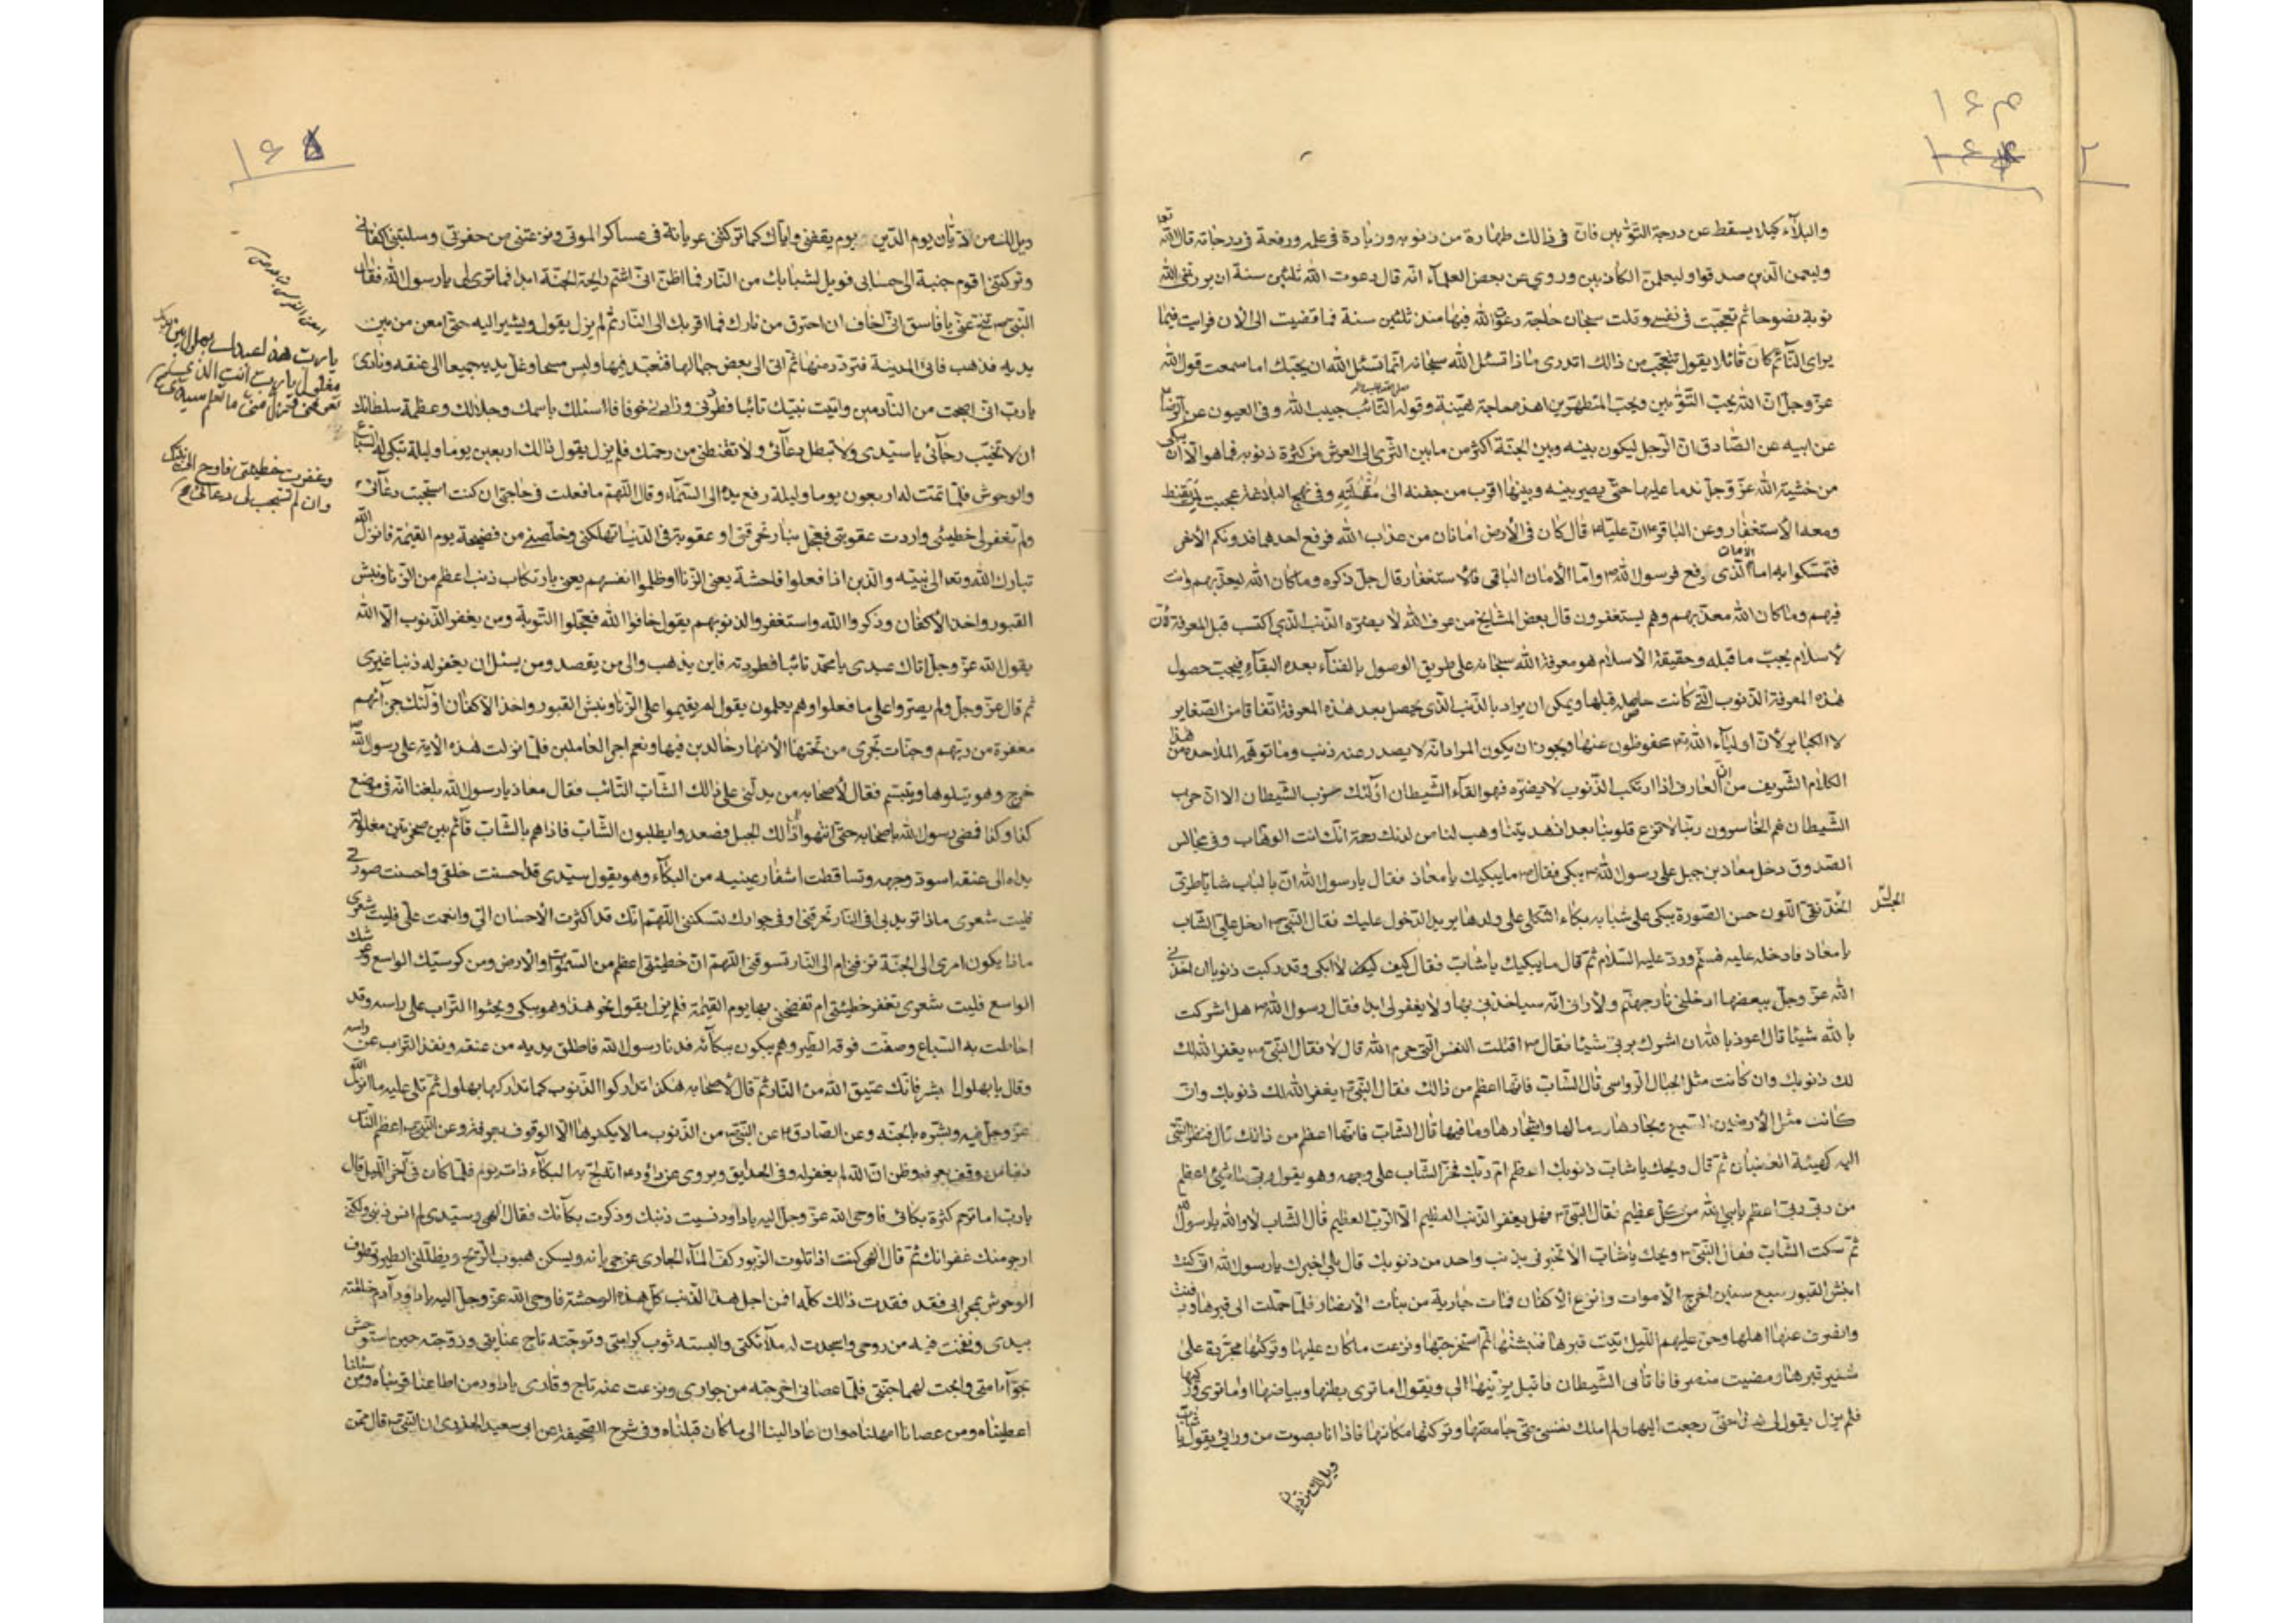 ١٤٣
١٤٤
٢
والبلاء كيلا يسقط عن درجة التوّابين فانّ فى ذالك طهارة من ذنوبه وزيادة فى علمه ورفعة فى درجاته قال الله تعا
وليعمن الّذين صدقوا وليعلمنّ الكاذبين وروي عن بعض العلمآء انّه قال دعوت الله ثلثين سنة ان يرزقنى الله
توبة نصوحا ثمّ تعجّبت فى نفسى وقلت سبحان حاجة دعوت الله فيها منذ ثلثين سنة فما قضيت الى الان فرايت فيما
يراى النّآئم كان قائلا يقول تتعجّب من ذالك اتدرى ماذا تسئل الله سبحانه انّما تسئل الله ان يحبّك اما سمعت قول الله
عزّ وجلّ انّ الله يحبّ التوّابين ويحبّ المتطهّرين اهذه حاجة هيّنة وقوله التّائب حبيب الله وفى العيون عن الرّضا
عن ابيه عن الصّادق انّ الرّجل ليكون بينه وبين الجنّة اكثر من ما بين الثّرى الى العرش من كثرة ذنوبه فما هو الّا ان يبكى
من خشية الله عزّ وجلّ ندما عليها حتّى يصير بينه وبينها اقرب من جفنه الى مُقْلَتِهِ وفى نهج البلاغة عجبت لمن يقنط
ومعه الاستغفار وعن الباقر ع انّ عليّا ع قال كان فى الأرض امانان من عذاب الله فرفع احدهما فدونكم الأخر
فتمسّكوا به امّا الأمان الّذى رفع فرسول الله ص وامّا الأمان الباقى فالاستغفار قال جلّ ذكره وماكان الله ليعذّبهم وانت
فيهم وماكان الله معذّبهم وهم يستغفرون قال بعض المشايخ من عرف الله لا يضرّه الذّنب الّذى اكتسب قبل المعرفة فانّ
لاسلام يجبّ ما قبله وحقيقة الاسلام هو معرفة الله سبحانه على طريق الوصول بالفنآء بعده البقآء فيجبّ حصول
هذه المعرفة الذّنوب الّتى كانت حاصلة قبلها ويمكن ان يراد بالذّنب الّذى يحصل بعد هذه المعرفة اتّفاقا من الصّغاير
لا الكبائر لأنّ اوليآء الله تع محفوظون عنها ويجوز ان يكون المراد انّه لا يصدر عنه ذنب وما توهّمه الملاحدة من هذا
الكلام الشّريف من انّ العارف اذا ارتكب الذّنوب لا يضرّه فهو القآء الشّيطان اولئك حزب الشّيطان الا انّ حزب
الشّيطان هم الخاسرون ربّنا لا تزغ قلوبنا بعد اذ هديتنا وهب لنا من لدنك رحمة انّك انت الوهّاب وفى مجالس
الصّدوق دخل معاذ بن جبل على رسول الله ص يبكى فقال ص ما يبكيك يا معاذ فقال يا رسول الله انّ بالباب شابّا طرىّ
الجسد
الخدّ نقىّ اللّون حسن الصّورة يبكى على شبابه بكآء الثّكلى على ولدها يريد الدّخول عليك فقال النّبىّ ص ادخل علىّ الشّاب
يا معاذ فادخله عليه فسلّم وردّ عليه السّلام ثمّ قال ما يبكيك يا شابّ فقال كيف لا ابكى وقد ركبت ذنوبا ان اخذنى
الله عزّ وجلّ ببعضها ادخلنى نار جهنّم ولا ارانى انّه سياخذنى بها ولا يغفر لى ابدا فقال رسول الله ص هل اشركت
بالله شيئا قال اعوذ بالله ان اشرك بربّى شيئا فقال ص اقتلت النّفس الّتى حرم الله قال لا فقال النّبىّ ص يغفر الله لك
لك ذنوبك وان كانت مثل الجبال الرواسى قال الشّابّ فانّها اعظم من ذالك فقال النّبىّ ص يغفر الله لك ذنوبك وان
كانت مثل الأرضين السّبع وبحارها ورمالها واشجارها وما فيها قال الشّابّ فانّها اعظم من ذالك قال فنظر النّبىّ
اليه كهيئة الغضبان ثمّ قال ويحك يا شابّ ذنوبك اعظم ام ربّك فخرّ الشّاب على وجهه وهو يقول ربّى ما شيئ اعظم
من ربّى ربّى اعظم يا نبى الله من كلّ عظيم فقال النّبىّ ص فهل يغفر الذّنب العظيم الّا الرّبّ العظيم قال الشّاب لا والله يا رسول الله
ثمّ سكت الشّابّ فقال النّبىّ ص ويحك يا شابّ الا تخبرنى بذنب واحد من ذنوبك قال بلى اخبرك يا رسول الله انّى كنت
انبش القبور سبع سنين اخرج الأموات وانزع الاكفان فماتت جارية من بنات الأنصار فلمّا حملت الى قبرها ودفنت
وانصرف عنها اهلها وجنّ عليهم اللّيل اتيت قبرها فنبشتها ثمّ استخرجتها ونزعت ماكان عليها وتركتها مجرّدة على
شفير قبرها ومضيت منصرفا فاتانى الشّيطان فاقبل يزيّنها الى ويقول اما ترى بطنها وبياضها اوما ترى وركيها
فلم يزل يقول لى هذا حتّى رجعت اليها ولم املك نفسى حتّى جامعتها وتركتها مكانها فاذا انا بصوت من ورائى يقول يا شابّ
ويل لك من ديّان
١٤٥
ويل لك من ديّان يوم الدّين يوم يقفنى وايّاك كما تركتنى عريانة فى عساكر الموتى ونزعتنى من حفرتى وسلبتنى اكفانى
وتركتنى اقوم جنبة الى حسابى فويل لشبابك من النّار فما اظنّ انّى اشتم رايحة الجنّة ابدا فما ترى لى يا رسول الله فقال
النّبىّ ص تنحّ عنّى يا فاسق انّى اخاف ان احترق من نارك فما اقربك الى النّار ثمّ لم يزل يقول ويشير اليه حتّى امعن من بين
يديه فذهب فاتى المدينة فتزوّد منها ثمّ اتى الى بعض جبالها فتعبّد فيها ولبس مسحا وغلّ يديه جميعا الى عنقه ونادى
يا ربّ هذا عبدك بهلول بين يديك
مغلول يا ربّ انت الّذى
يا ربّ انّى اصبحت من النّادمين واتيت نبيّك تائبا فطردنى وزادنى خوفا فاسئلك باسمك وجلالك وعظمة سلطانك
ان لا تخيّب رجآئى يا سيّدى ولا تبطل دعآئى ولا تقنطنى من رحمتك فلم يزل يقول ذالك اربعين يوما وليلة تبكى له السّباع
والوحوش فلمّا تمّت له اربعون يوما وليلة رفع يده الى السّمآء وقال اللّهمّ ما فعلت فى حاجتى ان كنت استجبت دعآئى
وغفرت خطيئتى فاوح الى نبيّك
وان لم تستجب لى دعائى
ولم تغفر لى خطيئتى واردت عقوبتى فعجّل بنار تحرقنى او عقوبة فى الدّنيا تهلكنى وخلّصنى من فضيحة يوم القيمة فانزل الله
تبارك الله وتعا الى نبيّه والّذين اذا فعلوا فاحشة يعنى الزّنا او ظلموا انفسهم يعنى بارتكاب ذنب اعظم من الزّنا ونبش
القبور واخذ الأكفان وذكروا الله واستغفروا لذنوبهم يقول خافوا الله فعجّلوا التّوبة ومن يغفر الذّنوب الّا الله
يقول الله عزّ وجلّ اتاك عبدى يا محمّد تائبا فطردته فاين يذهب والى من يقصد ومن يسئل ان يغفر له ذنبا غيرى
ثم قال عزّ وجلّ ولم يصرّوا على ما فعلوا وهم يعلمون يقول لم يقيموا على الزّنا ونبش القبور واخذ الاكفان اولئك جزآئهم
مغفرة من ربّهم وجنّات تجرى من تحتها الأنهار خالدين فيها ونعم اجر العاملين فلمّا نزلت هذه الآية على رسول الله ص
خرج وهو يتلوها ويتبسّم فقال لأصحابه من يدلّنى على ذالك الشّابّ التّائب فقال معاذ يا رسول الله بلغنا انّه فى موضع
كذا وكذا فمضى رسول الله باصحابه حتّى انتهوا الى ذالك الجبل فصعدوا يطلبون الشّابّ فاذا هم بالشّابّ قآئم بين صخرتين مغلولة
يداه الى عنقه اسودّ وجهه وتساقطت اشفار عينيه من البكآء وهو يقول سيّدى قد احسنت خلقى واحسنت صورتى
فليت شعرى ماذا تريد بى افى النّار تحرقنى او فى جوارك تسكننى اللّهمّ انّك قد اكثرت الأحسان الىّ وانعمت علىّ فليت شعرى
ماذا يكون امرى الى الجنّة تزفّنى ام الى النّار تسوقنى اللّهمّ انّ خطيئتى اعظم من السّموات والأرض ومن كرسيّك الواسع وعرشك
الواسع فليت شعرى تغفر خطيئتى ام تفضحنى بها يوم القيمة فلم يزل يقول نحو هذا وهو يبكى ويحثوا التّراب على راسه وقد
احاطت به السّباع وصفّت فوقه الطّير وهم يبكون ببكآئه فدنا رسول الله فاطلق يديه من عنقه ونفذ التّراب عن راسه
وقال يا بهلول ابشر فانّك عتيق الله من النّار ثمّ قال لأصحابه هكذا تداركوا الذّنوب كما تداركها بهلول ثمّ تلى عليه ما انزل الله
عزّ وجلّ فيه وبشّره بالجنّة وعن الصّادق ع عن النّبىّ ص من الذّنوب ما لا يكفرها الّا الوقوف بعرفة وعن النّبىّ ص اعظم النّاس
ذنبا من وقف بعرفة وظنّ انّ الله لم يغفر له وفى الحدايق ويروى عن داود ع انّه لجّ به البكآء ذات يوم فلمّا كان فى آخر اللّيل قال
يا ربّ اما ترحم كثرة بكائى فاوحى الله عزّ وجلّ اليه يا داود نسيت ذنبك وذكرت بكآئك فقال الهى وسيّدى لم انس ذنبى ولكنّى
ارجو منك غفرانك ثمّ قال الهى كنت اذا تلوت الزّبور كفّ المآء الجارى عن جريانه ويسكن هبوب الرّيح ويظلّلنى الطير وتطوف
الوحوش بمحرابى فقد فقدت ذالك كلّه افمن اجل هذا الذّنب كلّ هذه الوحشة فاوحى الله عزّ وجلّ اليه يا داود آدم خلقته
بيدى ونفخت فيه من روحى واسجدت له ملآئكتى والبسته ثوب كرامتى وتوّجته تاج عنايتى وزوّجته حين استوحش
بحوّآء امتى وابحت لهما جنّتى فلمّا عصانى اخرجته من جوارى ونزعت عنه تاج وقارى يا داود من اطاعنا قرّبناه ومن سئلنا
اعطيناه ومن عصانا امهلناه وان عاد الينا الى ماكان قبلناه وفى شرح الصّحيفة عن ابى سعيد الخدرى ان النّبىّ ص قال ممّن